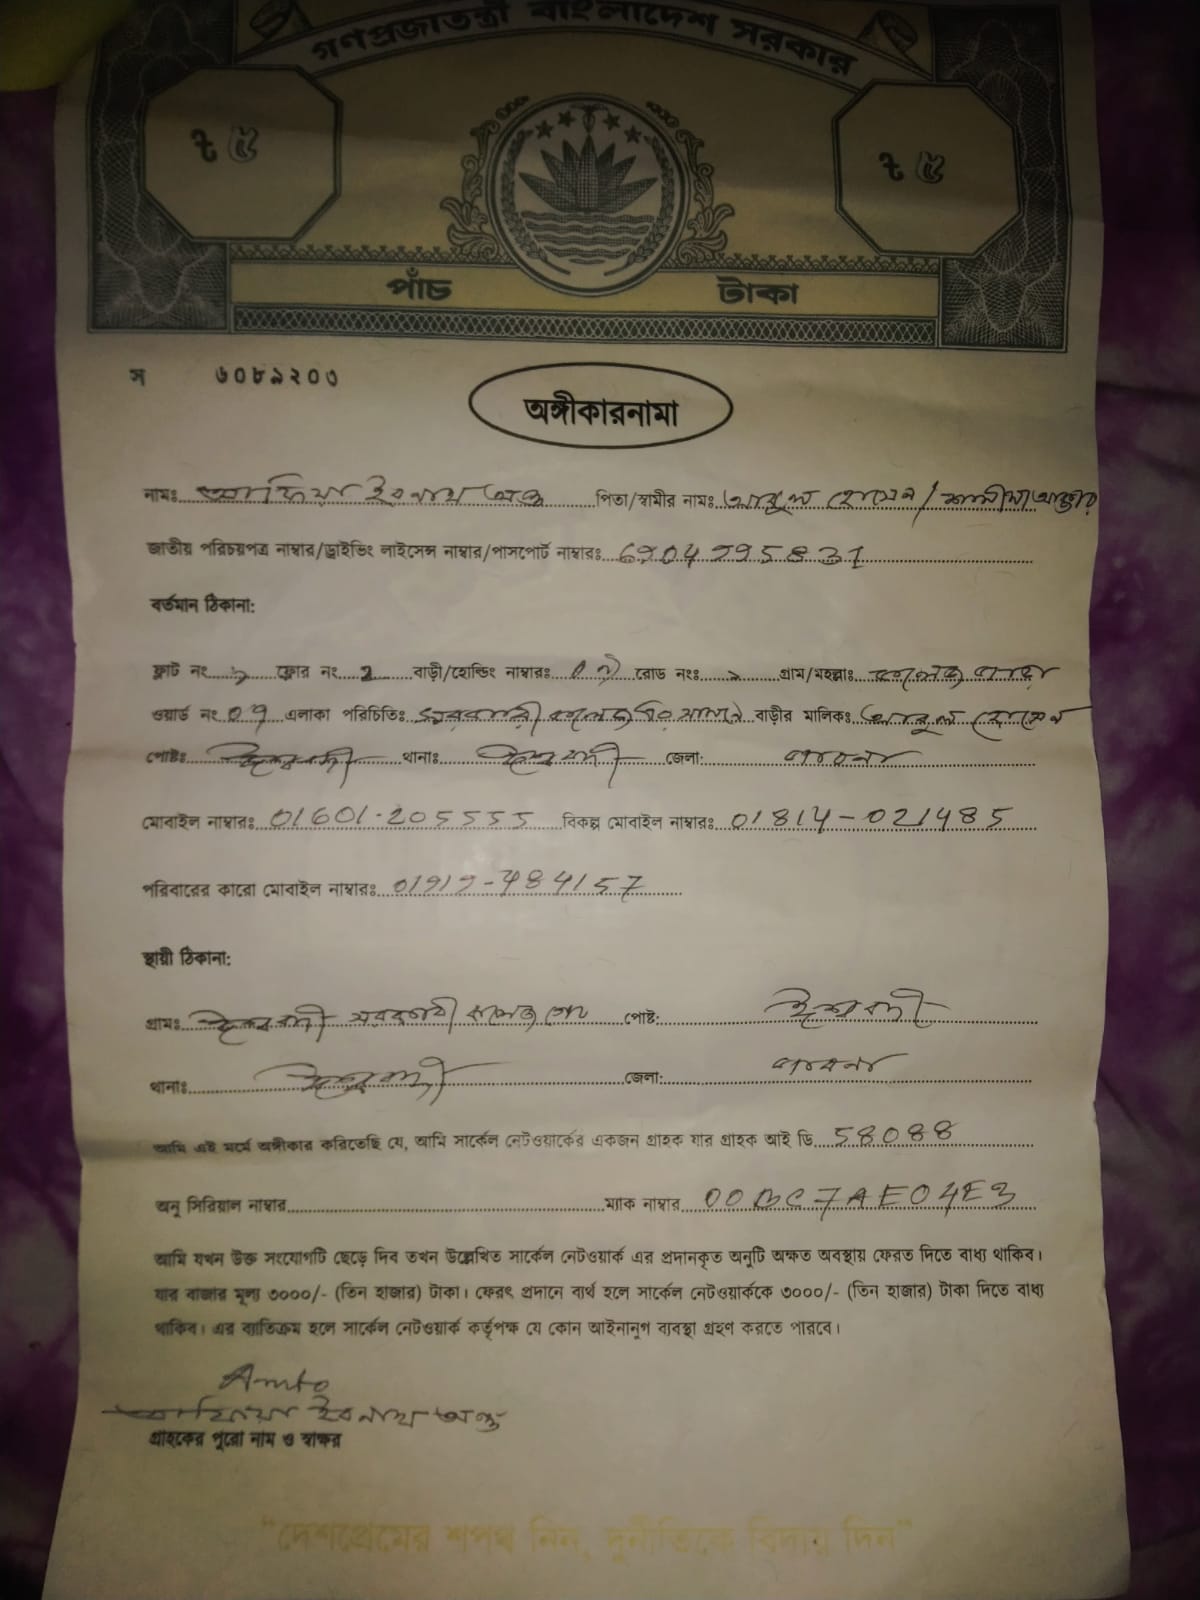 গণপ্রজাতন্ত্রী বাংলাদেশ সরকার
৳ ৫ ৳ ৫
পাঁচ টাকা
স ৬০৮৯২০৩
অঙ্গীকারনামা
নামঃ আফিয়া ইবনাথ অন্তু পিতা/স্বামীর নামঃ আবুল হোসেন / শামীমা আক্তার
জাতীয় পরিচয়পত্র নাম্বার/ড্রাইভিং লাইসেন্স নাম্বার/পাসপোর্ট নাম্বারঃ
বর্তমান ঠিকানা:
ফ্লাট নং ফ্লোর নং 2 বাড়ী/হোল্ডিং নাম্বারঃ রোড নংঃ গ্রাম/মহল্লাঃ কলেজ পাড়া
ওয়ার্ড নং এলাকা পরিচিতিঃ সরকারী কলেজের সামনে বাড়ীর মালিকঃ আবুল হোসেন
পোষ্টঃ ঈশ্বরদী থানাঃ ঈশ্বরদী জেলা: পাবনা
মোবাইল নাম্বারঃ 01601-205555 বিকল্প মোবাইল নাম্বারঃ 01814-021485
পরিবারের কারো মোবাইল নাম্বারঃ
স্থায়ী ঠিকানা:
গ্রামঃ ঈশ্বরদী সরকারী কলেজ পোষ্ট: ঈশ্বরদী
থানাঃ ঈশ্বরদী জেলা: পাবনা
আমি এই মর্মে অঙ্গীকার করিতেছি যে, আমি সার্কেল নেটওয়ার্কের একজন গ্রাহক যার গ্রাহক আই ডি 58088
অনু সিরিয়াল নাম্বার ম্যাক নাম্বার 00BC7AE04E3
আমি যখন উক্ত সংযোগটি ছেড়ে দিব তখন উল্লেখিত সার্কেল নেটওয়ার্ক এর প্রদানকৃত অনুটি অক্ষত অবস্থায় ফেরত দিতে বাধ্য থাকিব।
যার বাজার মূল্য ৩০০০/- (তিন হাজার) টাকা। ফেরৎ প্রদানে ব্যর্থ হলে সার্কেল নেটওয়ার্ককে ৩০০০/- (তিন হাজার) টাকা দিতে বাধ্য
থাকিব। এর ব্যতিক্রম হলে সার্কেল নেটওয়ার্ক কর্তৃপক্ষ যে কোন আইনানুগ ব্যবস্থা গ্রহণ করতে পারবে।
Amto
আফিয়া ইবনাথ অন্তু
গ্রাহকের পুরো নাম ও স্বাক্ষর
"দেশপ্রেমের শপথ নিন, দুর্নীতিকে বিদায় দিন"